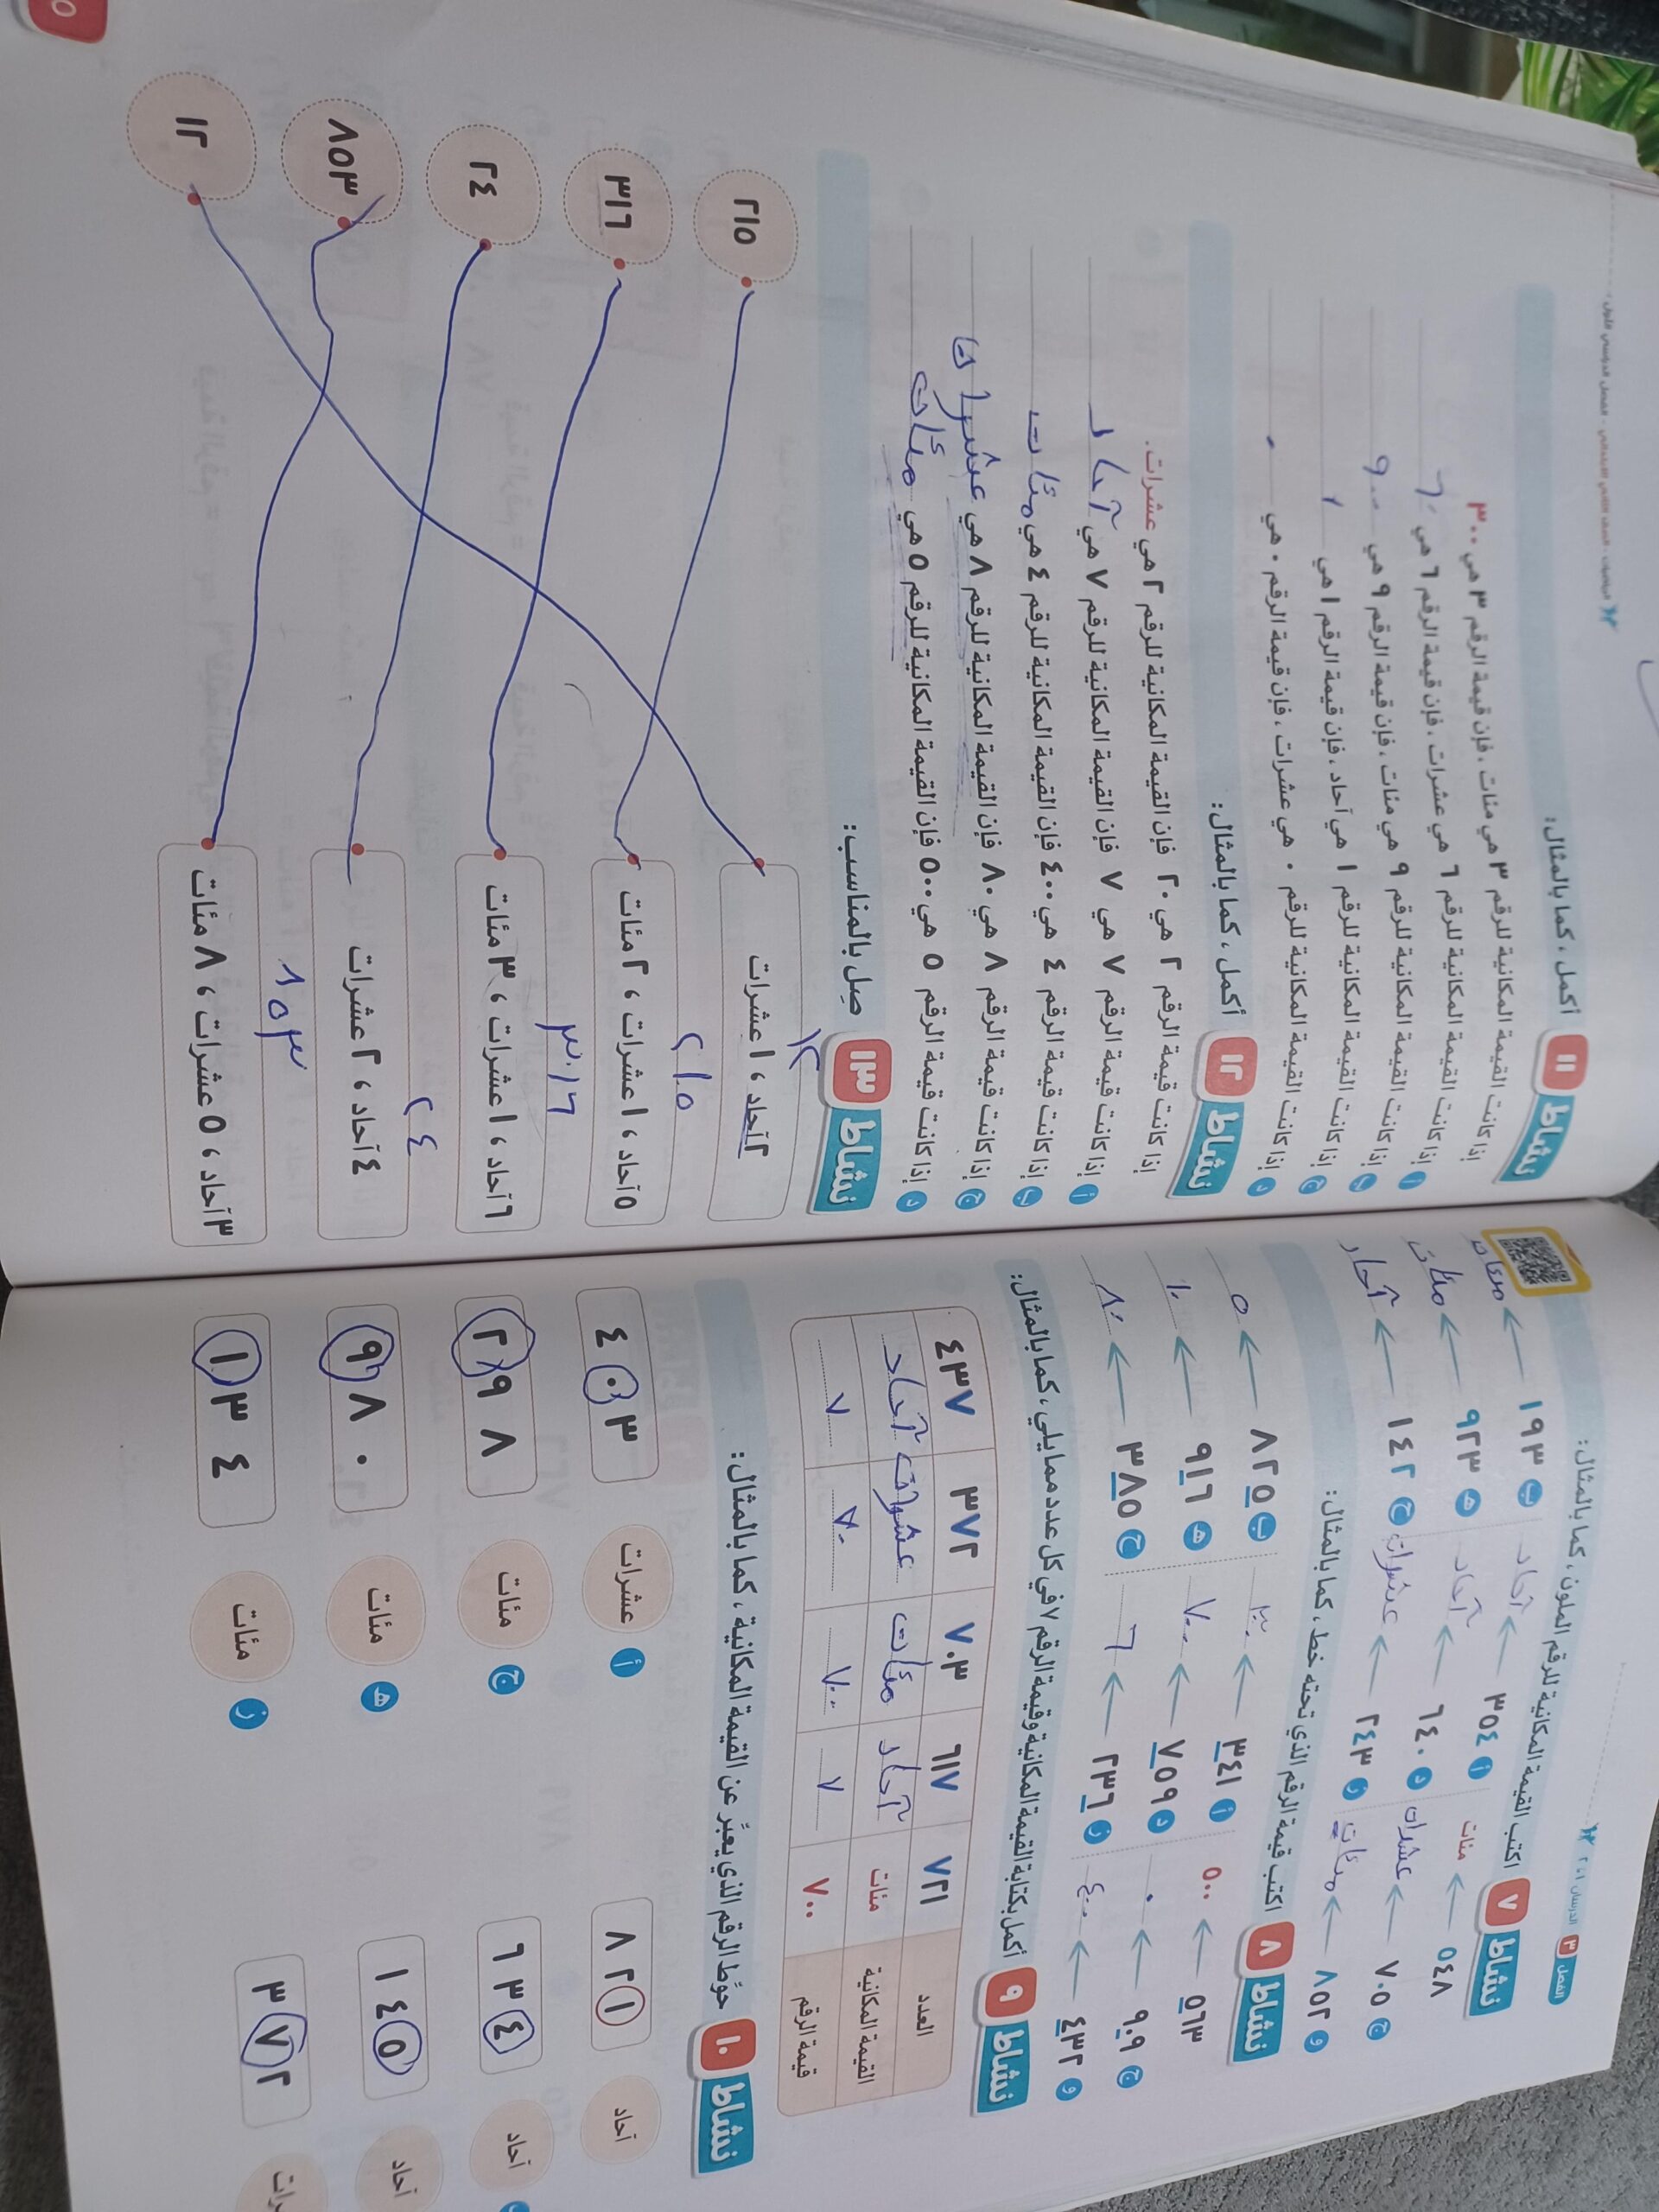 الفصل ٣ الدرسان ١ ، ٢
نشاط ٧ اكتب القيمة المكانية للرقم الملون ، كما بالمثال:
٥٤٨ ← مئات أ ٣٥٤ ← آحاد ب ١٩٣ ← مئات
ج ٧٠٥ ← عشرات د ٦٤٠ ← آحاد هـ ٩٢٣ ← مئات
و ٨٥٢ ← مئات ز ٢٤٣ ← عشرات ح ١٤٢ ← آحاد
نشاط ٨ اكتب قيمة الرقم الذي تحته خط ، كما بالمثال:
٥٦٣ ← ٥٠٠ أ ٣٤١ ← ٣٠٠ ب ٨٢٥ ← ٥
ج ٩٠٩ ← ٠ د ٧٥٩ ← ٧٠٠ هـ ٩١٦ ← ١٠
و ٤٣٢ ← ٤٠٠ ز ٢٣٦ ← ٦ ح ٣٨٥ ← ٨٠
نشاط ٩ أكمل بكتابة القيمة المكانية وقيمة الرقم ٧ في كل عدد مما يلي ، كما بالمثال:
العدد ٧٢١ ٦١٧ ٧٠٣ ٣٧٢ ٤٣٧
القيمة المكانية مئات آحاد مئات عشرات آحاد
قيمة الرقم ٧٠٠ ٧ ٧٠٠ ٧٠ ٧
نشاط ١٠ حوِّط الرقم الذي يعبِّر عن القيمة المكانية ، كما بالمثال:
آحاد ٨ ٢ ١ أ عشرات ٤ ٠ ٣
آحاد ٦ ٣ ٤ ج مئات ٢ ٩ ٨
آحاد ١ ٤ ٥ هـ مئات ٩ ٨ ٠
٣ ٧ ٢ ز مئات ١ ٣ ٤
نشاط ١١ أكمل ، كما بالمثال:
إذا كانت القيمة المكانية للرقم ٣ هي مئات ، فإن قيمة الرقم ٣ هي ٣٠٠
أ إذا كانت القيمة المكانية للرقم ٦ هي عشرات ، فإن قيمة الرقم ٦ هي ٦٠
ب إذا كانت القيمة المكانية للرقم ٩ هي مئات ، فإن قيمة الرقم ٩ هي ٩٠٠
ج إذا كانت القيمة المكانية للرقم ١ هي آحاد ، فإن قيمة الرقم ١ هي ١
د إذا كانت القيمة المكانية للرقم ٠ هي عشرات ، فإن قيمة الرقم ٠ هي ٠
نشاط ١٢ أكمل ، كما بالمثال:
إذا كانت قيمة الرقم ٢ هي ٢٠ فإن القيمة المكانية للرقم ٢ هي عشرات.
أ إذا كانت قيمة الرقم ٧ هي ٧ فإن القيمة المكانية للرقم ٧ هي آحاد
ب إذا كانت قيمة الرقم ٤ هي ٤٠٠ فإن القيمة المكانية للرقم ٤ هي مئات
ج إذا كانت قيمة الرقم ٨ هي ٨٠ فإن القيمة المكانية للرقم ٨ هي عشرات
د إذا كانت قيمة الرقم ٥ هي ٥٠٠ فإن القيمة المكانية للرقم ٥ هي مئات
نشاط ١٣ صِل بالمناسب:
١٢
٢ آحاد ، ١ عشرات ٢١٥
٢١٥
٥ آحاد ، ١ عشرات ، ٢ مئات ٣١٦
٣١٦
٦ آحاد ، ١ عشرات ، ٣ مئات ٢٤
٢٤
٤ آحاد ، ٢ عشرات ٨٥٣
٨٥٣
٣ آحاد ، ٥ عشرات ، ٨ مئات ١٢